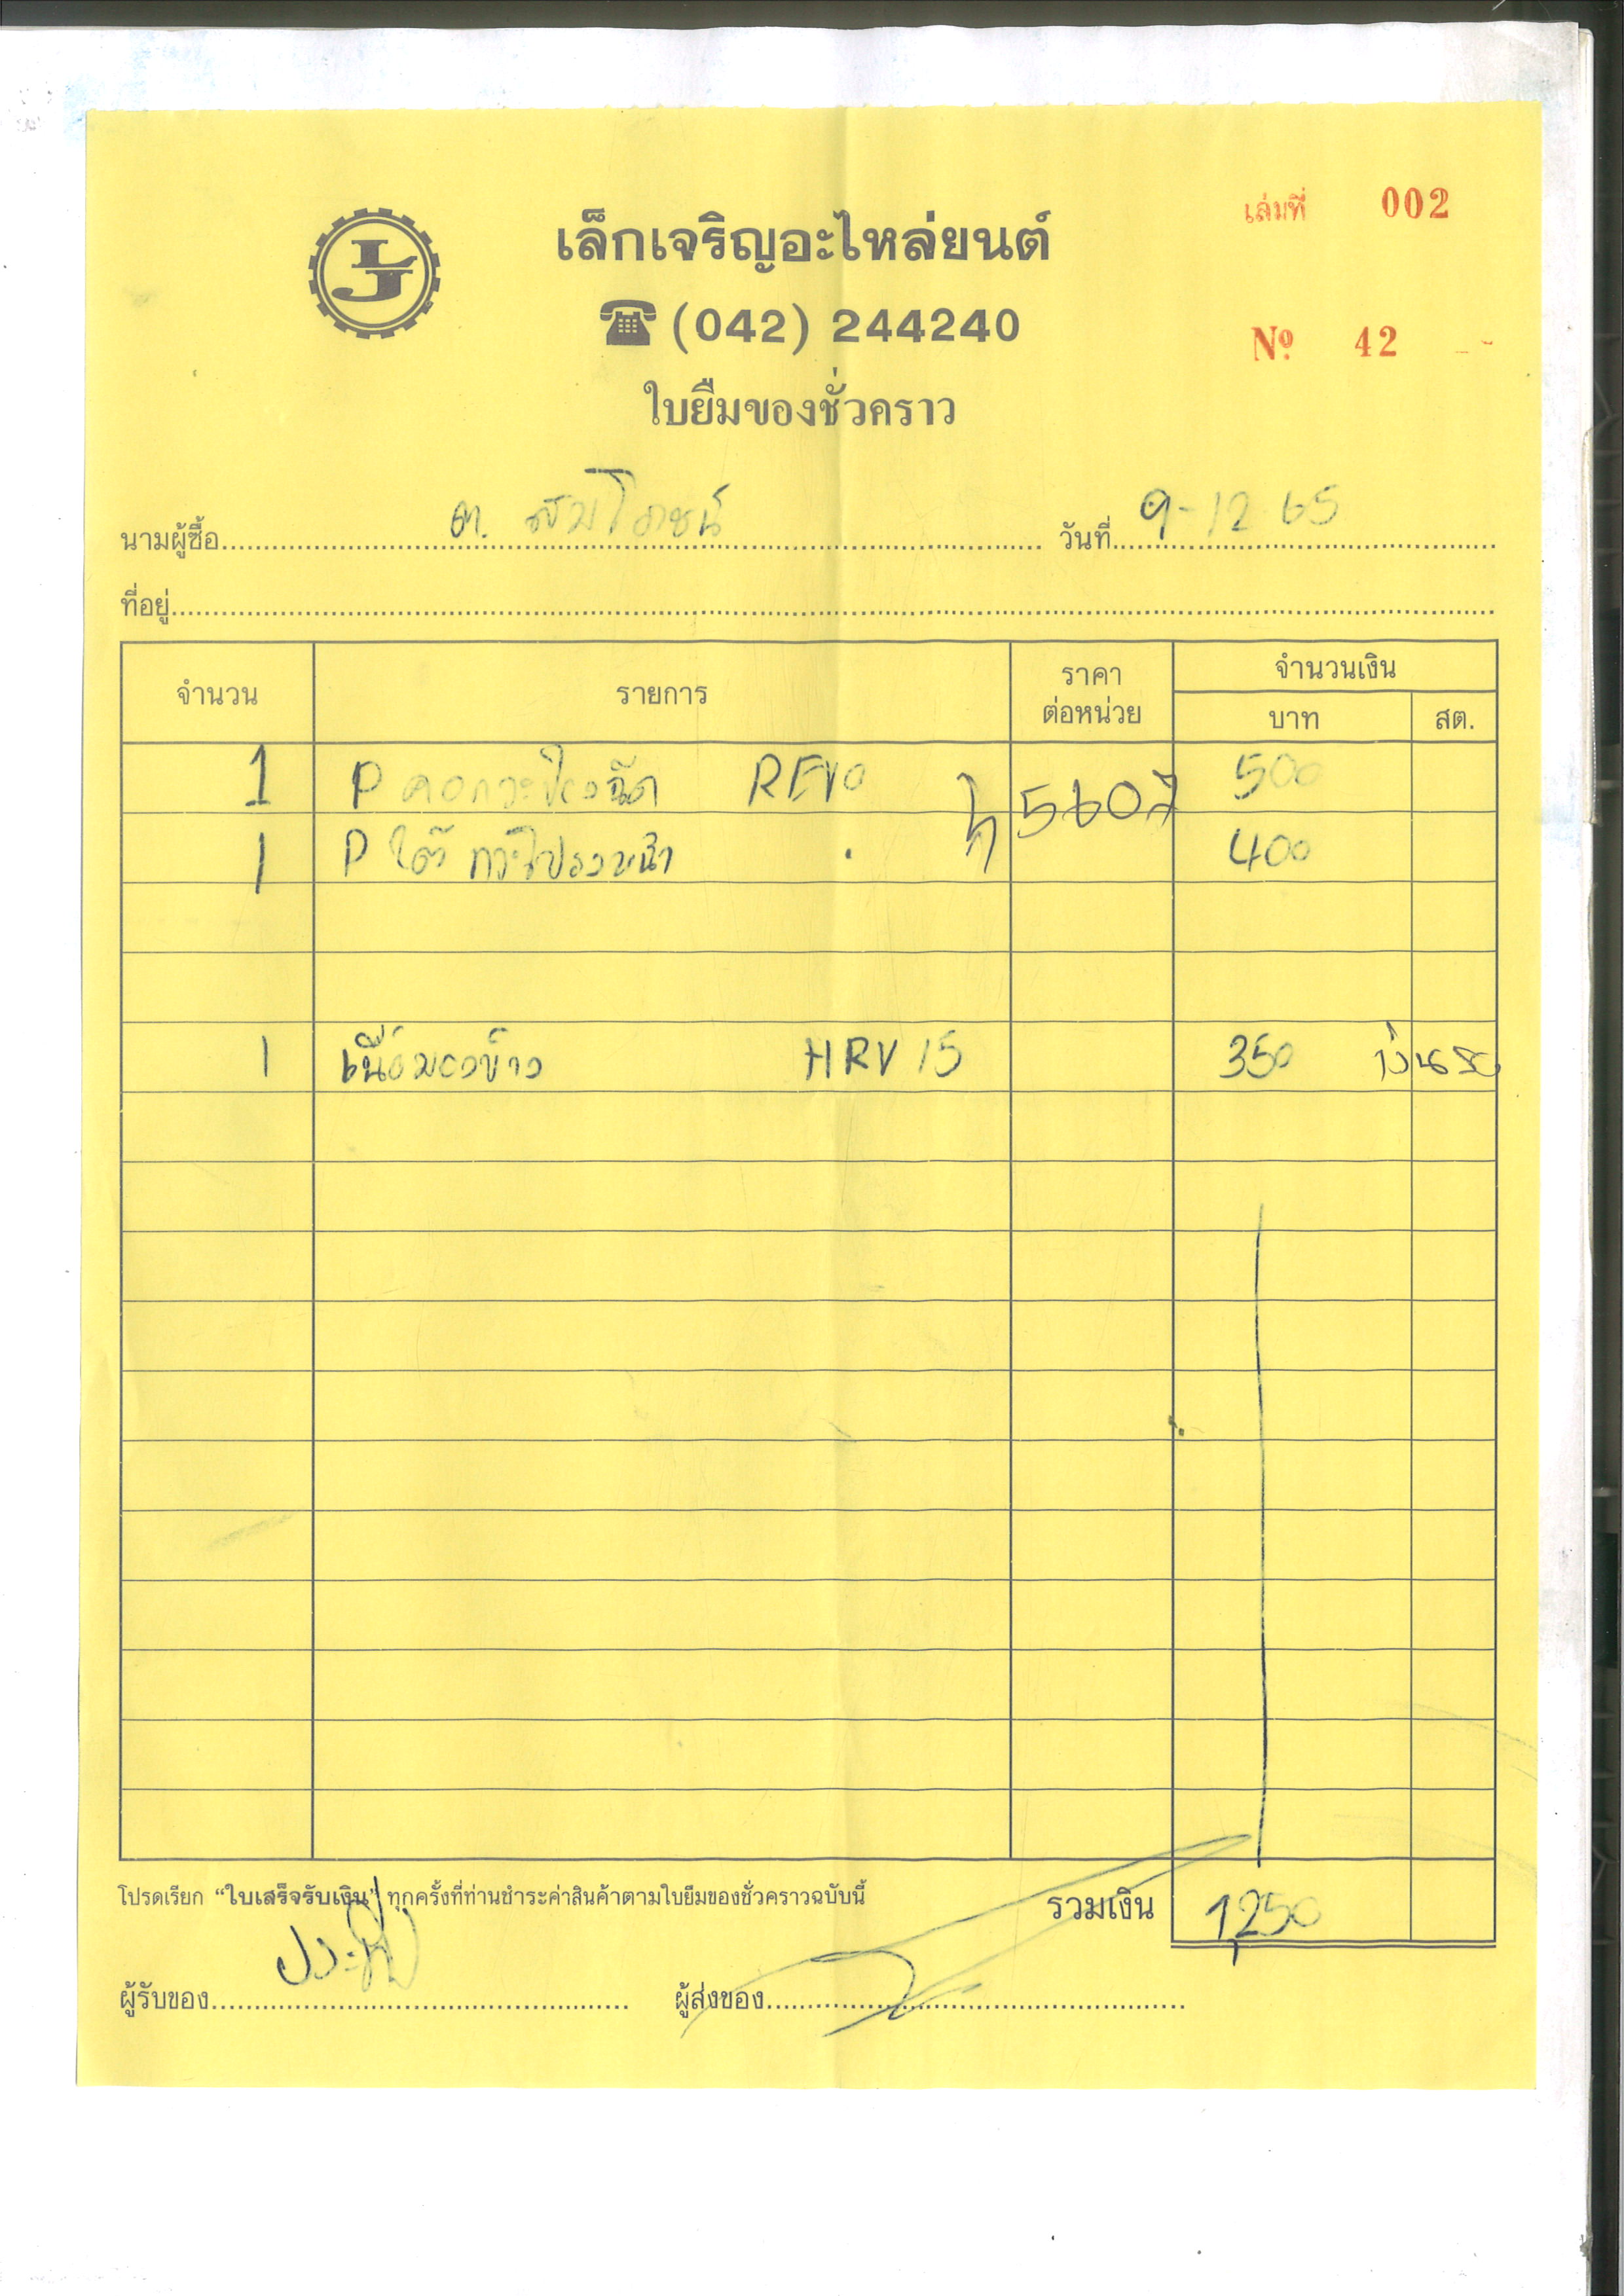 เล่มที่ 002
LJ
เล็กเจริญอะไหล่ยนต์
(042) 244240
Nº 42
ใบยืมของชั่วคราว
นามผู้ซื้อ ต. สมโภชน์ วันที่ 9-12 65
ที่อยู่
จำนวน รายการ ราคาต่อหน่วย จำนวนเงิน
บาท สต.
1 P คอกระป๋องฉีด REVO 500
5607
1 P ใต้ 400
1 HRV 15 350
โปรดเรียก “ใบเสร็จรับเงิน” ทุกครั้งที่ท่านชำระค่าสินค้าตามใบยืมของชั่วคราวฉบับนี้
รวมเงิน 1,250
ผู้รับของ ผู้ส่งของ